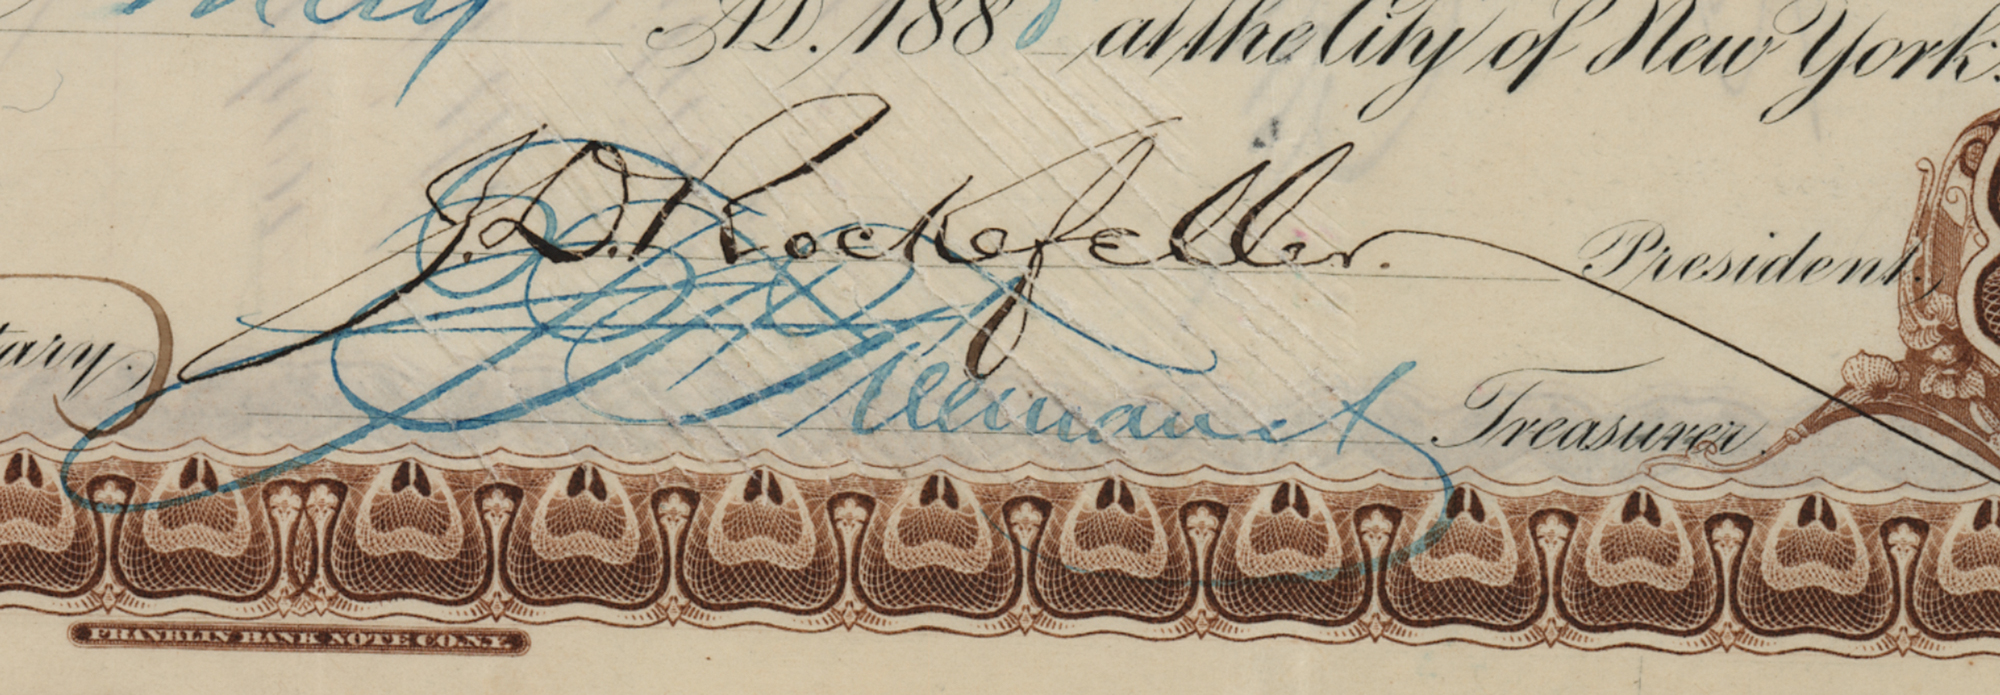 May A.D. 188 at the City of New York.
J.D. Rockefeller. President.
tary.
Treasurer.
FRANKLIN BANK NOTE CO. N.Y.